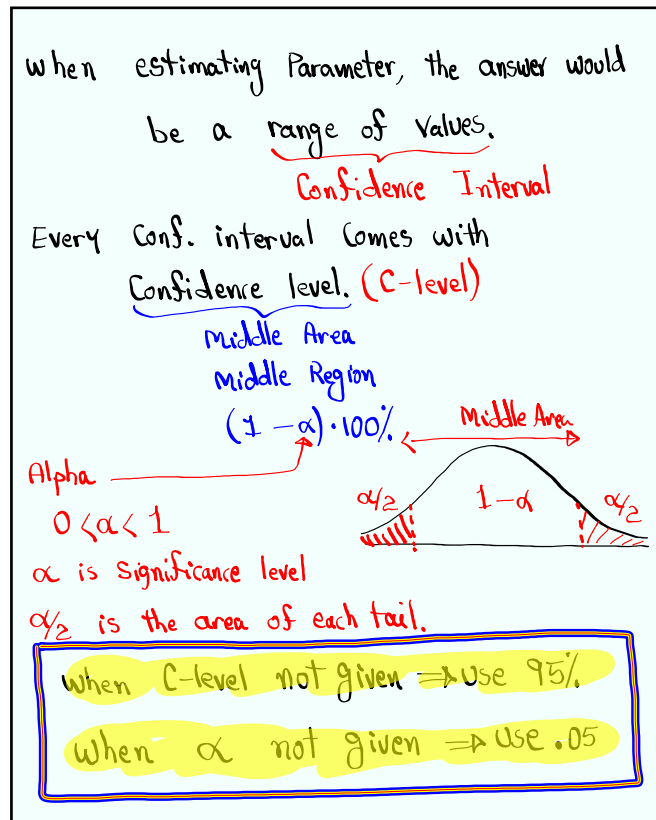 When estimating Parameter, the answer would
be a range of Values.
Confidence Interval
Every Conf. interval Comes with
Confidence level. (C-level)
Middle Area
Middle Region
(1 - α)·100%
Middle Area
Alpha
α/2 1-α α/2
0 < α < 1
α is Significance level
α/2 is the area of each tail.
When C-level not given ⇒ Use 95%
When α not given ⇒ Use .05